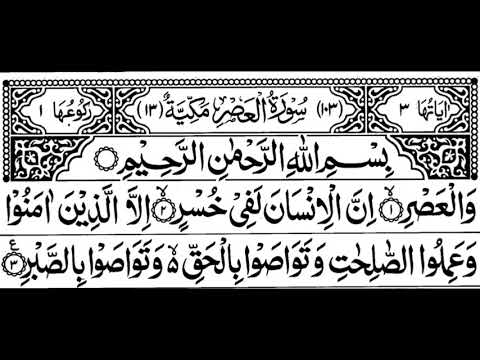 اٰيَاتُهَا ٣ (١٠٣) سُوْرَةُ الْعَصْرِ مَكِّيَّةٌ (١٣) رُكُوْعُهَا ١
بِسْمِ اللّٰهِ الرَّحْمٰنِ الرَّحِيْمِ
وَالْعَصْرِۙ ۝١ اِنَّ الْاِنْسَانَ لَفِيْ خُسْرٍۙ ۝٢ اِلَّا الَّذِيْنَ اٰمَنُوْا
وَعَمِلُوا الصّٰلِحٰتِ وَتَوَاصَوْا بِالْحَقِّ ۵ وَتَوَاصَوْا بِالصَّبْرِ ۝٣ ع